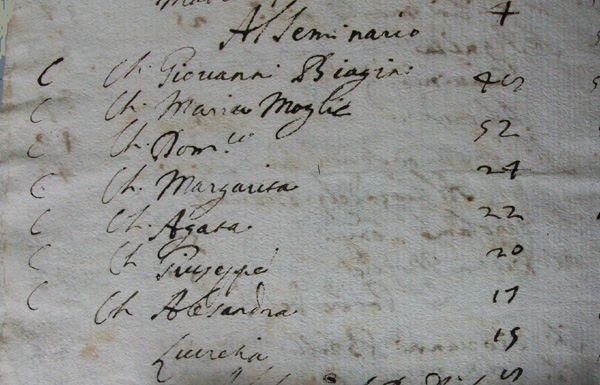 4
Al Seminario
C Ch. Giovanni Biagini
C Ch. Maria Moglie
C Ch. Dom.co 52
C Ch. Margarita 24
C Ch. Agata 22
C Ch Giuseppe 20
C Ch. Alesandra 17
Lucretia 15